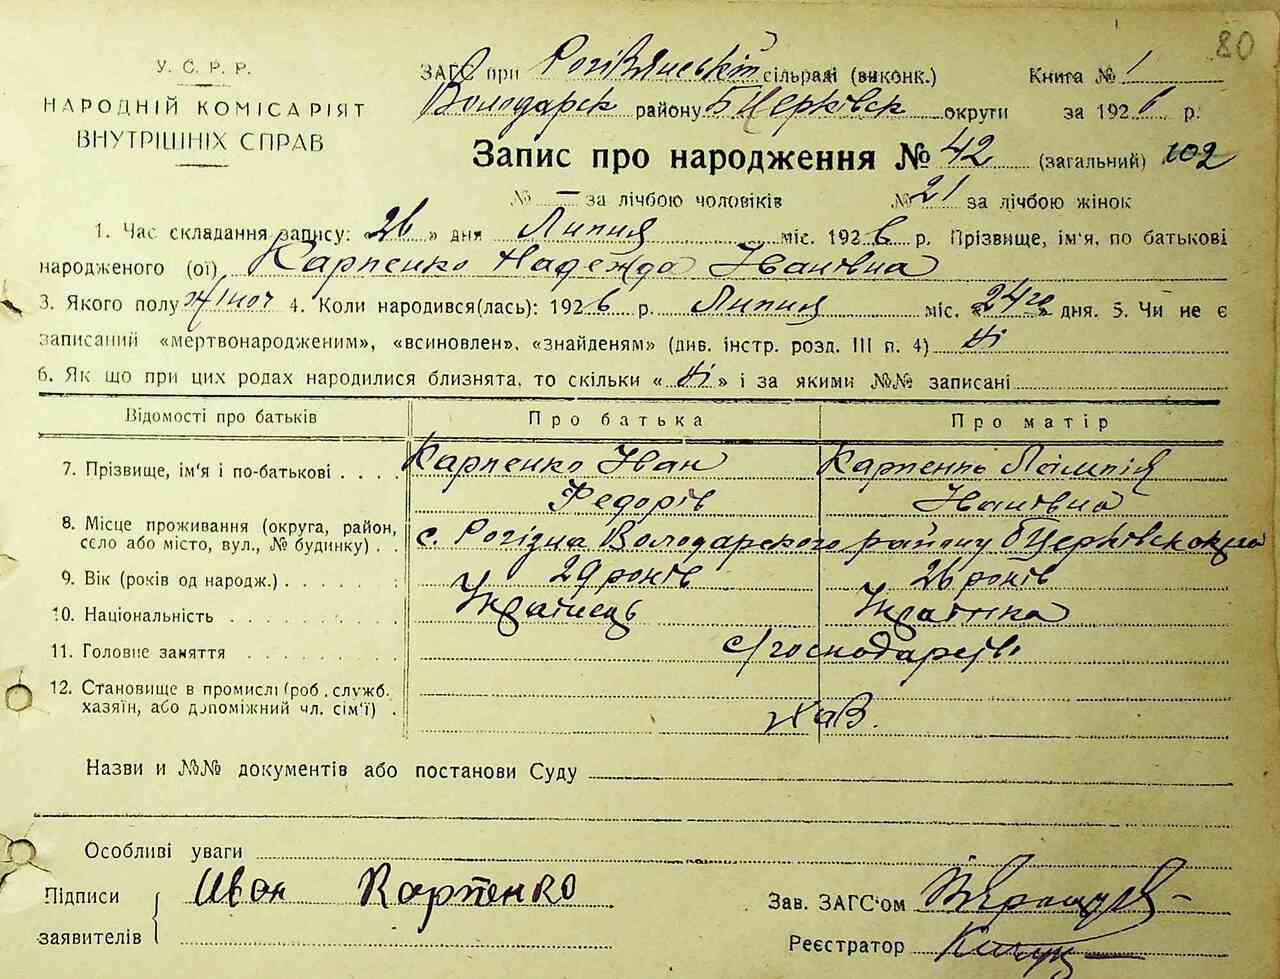 80
У. С. Р. Р.
НАРОДНІЙ КОМІСАРІЯТ
ВНУТРІШНІХ СПРАВ
ЗАГС при Рогізянській сільраді (виконк.) Книга № 1
Володарск району БЦерківск округи за 1926 р.
Запис про народження № 42 (загальний) 102
№ — за лічбою чоловіків № 21 за лічбою жінок
1. Час складання запису: «26» дня Липня міс. 1926 р. Прізвище, ім'я, по батькові
народженого (ої) Карпенко Надежда Іванівна
3. Якого полу жіноч 4. Коли народився(лась): 1926 р. Липня міс. «24го» дня. 5. Чи не є
записаний «мертвонародженим», «всиновлен», «знайденям» (див. інстр. розд. III п. 4) Ні
6. Як що при цих родах народилися близнята, то скільки « Ні » і за якими №№ записані
Відомості про батьків Про батька Про матір
7. Прізвище, ім'я і по-батькові . . . . Карпенко Іван Карпенко Лампія
Федорів Іванівна
8. Місце проживання (округа, район,
село або місто, вул., № будинку) . . с. Рогізна Володарского району БЦерківск
9. Вік (років од народж.) . . . . . 29 років 26 років
10. Національність . . . . . . . . Українець Українка
11. Головне заняття . . . . . . . с/господарств
12. Становище в промислі (роб., служб.
хазяїн, або допоміжний чл. сім'ї) . хаз.
Назви и №№ документів або постанови Суду
Особливі уваги
Підписи Иван Карпенко Зав. ЗАГС'ом
заявителів Реєстратор